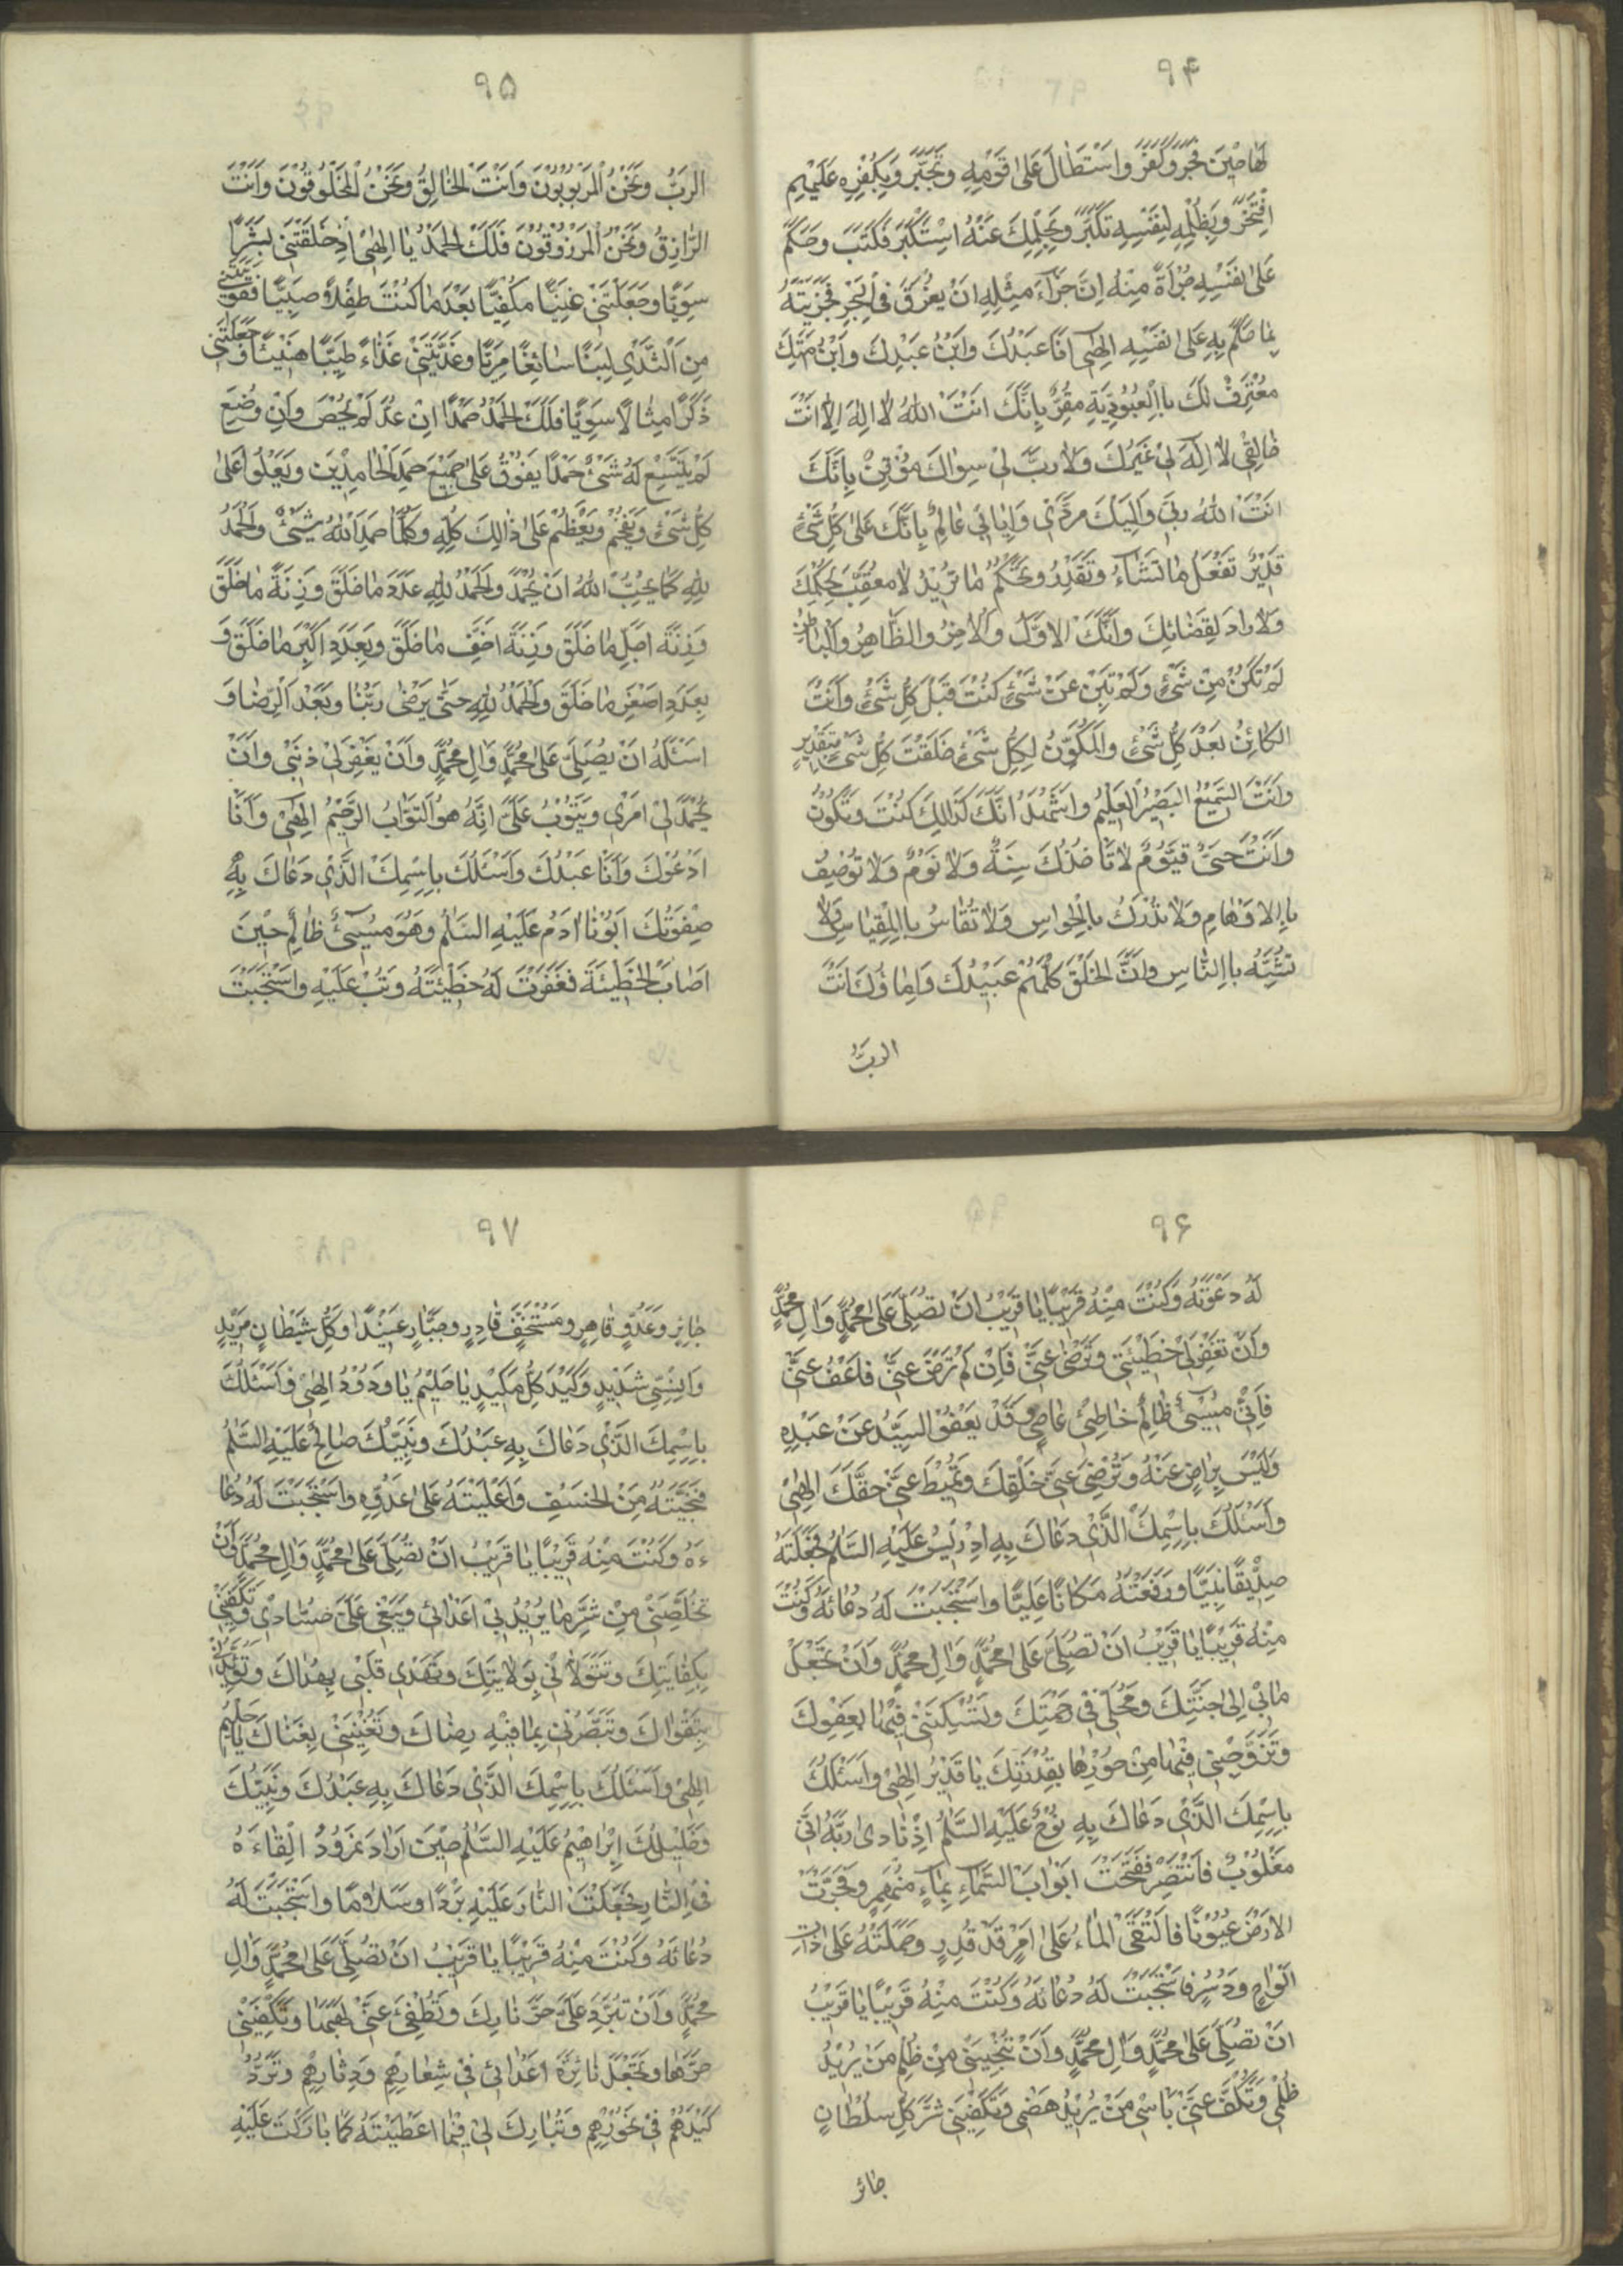 ٩۴
لَهَا حِيْنَ فَجَرَ وَكَفَرَ وَاسْتَطَالَ عَلىٰ قَوْمِهِ وَتَجَبَّرَ وَبِكُفْرِهِ عَلَيْهِمْ
افْتَخَرَ وَبِظُلْمِهِ لِنَفْسِهِ تَكَبَّرَ وَبِحِلْمِكَ عَنْهُ اسْتَكْبَرَ فَكَتَبَ وَحَكَمَ
عَلىٰ نَفْسِهِ جُرْأَةً مِنْهُ اِنَّ جَزَآءَ مِثْلِهِ اَنْ يُغْرَقَ فِي الْبَحْرِ فَجَزَيْتَهُ
بِمَا حَكَمَ بِهِ عَلىٰ نَفْسِهِ اِلٰهِى اَنَا عَبْدُكَ وَابْنُ عَبْدِكَ وَابْنُ اَمَتِكَ
مُعْتَرِفٌ لَكَ بِاالْعُبُودِيَّةِ مُقِرٌّ بِاَنَّكَ اَنْتَ اللهُ لا اِلٰهَ اِلاّ اَنْتَ
خَالِقِى لا اِلٰهَ لِىْ غَيْرُكَ وَلا رَبَّ لِىْ سِوَاكَ مُوْقِنٌ بِاَنَّكَ
اَنْتَ اللهُ رَبِّى وَاِلَيْكَ مَرَدِّىْ وَاِيَابِى عَالِمٌ بِاَنَّكَ عَلىٰ كُلِّ شَئٍ
قَدِيْرٌ تَفْعَلُ مَا تَشَاءُ وَتَقْدِرُ وَتَحْكُمُ مَا تُرِيْدُ لا مُعَقِّبَ لِحُكْمِكَ
وَلا رَادَ لِقَضَائِكَ وَاَنَّكَ الاَوَّلُ وَالاخِرُ وَالظَّاهِرُ وَالْبَاطِنُ
لَمْ تَكُنْ مِنْ شَئٍ وَلَمْ تَبِنْ عَنْ شَئٍ كُنْتَ قَبْلَ كُلِّ شَئٍ وَاَنْتَ
الكَائِنُ بَعْدَ كُلِّ شَئٍ وَالْمُكَوِّنُ لِكُلِّ شَئٍ خَلَقْتَ كُلَّ شَئٍ بِتَقْدِيْرٍ
وَاَنْتَ السَّمِيْعُ الْبَصِيْرُ الْعَلِيْمُ وَاَشْهَدُ اَنَّكَ كَذَالِكَ كُنْتَ وَتَكُوْنُ
وَاَنْتَ حَىٌّ قَيُّوْمٌ لا تَاْخُذُكَ سِنَةٌ وَلا نَوْمٌ وَلا تُوْصَفُ
بِاالاوْهَامِ وَلا تُدْرَكُ بِالْحَوَاسِ وَلا تُقَاسُ بِاالْمِقْيَاسِ وَلا
تُشَبَّهُ بِاالنَّاسِ وَاِنَّ الْخَلْقَ كُلَّهُمْ عَبِيْدُكَ وَاِمَاؤُكَ اَنْتَ
الربُّ
٩۵
الرَبُّ وَنَحْنُ الْمَرْبُوْبُوْنَ وَاَنْتَ الْخَالِقُ وَنَحْنُ الْمَخْلُوقُوْنَ وَاَنْتَ
الرَّازِقُ وَنَحْنُ الْمَرْزُوقُوْنَ فَلَكَ الْحَمْدُ يَا اِلٰهِىْ اِذْ خَلَقْتَنِىْ بَشَرًا
سَوِيًّا وَجَعَلْتَنِىْ غَنِيًّا مَكْفِيًّا بَعْدَ مَا كُنْتُ طِفْلاً صَبِيًّا تَقُوْتُنِى
مِنَ الثَّدْىِ لَبَنًا سَائِغًا مَرِيًّا وَغَذَّيْتَنِىْ غَذَاءً طَيِّبًا هَنِيْئًا وَجَعَلْتَنِى
ذَكَرًا مِثَالاً سَوِيًّا فَلَكَ الْحَمْدُ حَمْدًا اِنْ عُدَّ لَمْ يُحْصَ وَاِنْ وُضِعَ
لَمْ يَتَّسِعْ لَهُ شَئٌ حَمْدًا يَفُوْقُ عَلىٰ جَمِيْعِ حَمْدِ الْحَامِدِيْنَ وَيَعْلُوا عَلىٰ
كُلِّ شَئٍ وَيَفْخُمُ وَيَعْظُمُ عَلىٰ ذَالِكَ كُلِّهِ وَكُلَّمَا حَمِدَ اللهَ شَىْئٌ وَالْحَمْدُ
لِلّٰهِ كَمَا يُحِبُّ اللهُ اَنْ يُحْمَدَ وَالْحَمْدُ لِلّٰهِ عَدَدَ مَا خَلَقَ وَزِنَةَ مَا خَلَقَ
وَزِنَةَ اَجَلِّ مَا خَلَقَ وَزِنَةَ اَخَفِّ مَا خَلَقَ وَبِعَدَدِ اَكْبَرِ مَا خَلَقَ وَ
بِعَدَدِ اَصْغَرِ مَا خَلَقَ وَالْحَمْدُ لِلّٰهِ حَتّٰى يَرْضٰى رَبُّنَا وَبَعْدَ الرِّضَا وَ
اَسْئَلُهُ اَنْ يُصَلِّىَ عَلىٰ مُحَمَّدٍ وَالِ مُحَمَّدٍ وَاَنْ يَغْفِرَ لِىْ ذَنْبِىْ وَاَنْ
يَحْمَدَ لِىْ اَمْرِى وَيَتُوْبَ عَلَىَّ اِنَّهُ هُوَ التَّوَّابُ الرَّحِيْمُ اِلٰهِىْ وَاَنَا
اَدْعُوْكَ وَاَنَا عَبْدُكَ وَاَسْئَلُكَ بِاِسْمِكَ الَّذِىْ دَعَاكَ بِهِ
صِفْوَتُكَ اَبُوْنَا ادَمُ عَلَيْهِ السَّلٰمُ وَهُوَ مُسِيْئٌ ظَالِمٌ حِيْنَ
اَصَابَ الْخَطْيْئَةَ فَغَفَرْتَ لَهُ خَطِيْئَتَهُ وَتُبْتَ عَلَيْهِ وَاسْتَجَبْتَ
٩۶
لَهُ دَعْوَتَهُ وَكُنْتَ مِنْهُ قَرِيْبًا يَا قَرِيْبُ اَنْ تُصَلِّىَ عَلىٰ مُحَمَّدٍ وَالِ مُحَمَّدٍ
وَاَنْ تَغْفِرَ لِىْ خَطِيْئَتِى وَتَرْضٰى عَنِّى فَاِنْ لَمْ تَرْضَ عَنِّى فَاعْفُ عَنِّى
فَاِنِّىْ مُسِيْئٌ ظَالِمٌ خَاطِئٌ عَاصٍ وَقَدْ يَعْفُوْ السَّيِّدُ عَنْ عَبْدِهِ
وَلَيْسَ بِرَاضٍ عَنْهُ وَتُرْضِىَ عَنِّى خَلْقَكَ وَتُمِيْطَ عَنِّى حَقَّكَ اِلٰهِىْ
وَاَسْئَلُكَ بِاِسْمِكَ الَّذِىْ دَعَاكَ بِهِ اِدْرِيْسُ عَلَيْهِ السَّلٰمُ فَجَعَلْتَهُ
صِدِّيْقًا نَبِيًّا وَرَفَعْتَهُ مَكَانًا عَلِيًّا وَاسْتَجَبْتَ لَهُ دُعَائَهُ وَكُنْتَ
مِنْهُ قَرِيْبًا يَا قَرِيْبُ اَنْ تُصَلِّىَ عَلىٰ مُحَمَّدٍ وَالِ مُحَمَّدٍ وَاَنْ تَجْعَلَ
مَابِىْ اِلىٰ جَنَّتِكَ وَمَحَلِّى فِى رَحْمَتِكَ وَتُسْكِنَنِىْ فِيْهَا بِعَفْوِكَ
وَتُزَوِّجَنِى فِيْهَا مِنْ حُوْرِهَا بِقُدْرَتِكَ يَا قَدِيْرُ اِلٰهِى وَاَسْئَلُكَ
بِاِسْمِكَ الَّذِىْ دَعَاكَ بِهِ نُوْحٌ عَلَيْهِ السَّلٰمُ اِذْ نَادىٰ رَبَّهُ اَنِّى
مَغْلُوْبٌ فَانْتَصِرْ فَفَتَحْتَ اَبْوَابَ السَّمَاءِ بِمَاءٍ مُنْهَمِرٍ وَفَجَّرْتَ
الاَرْضَ عُيُوْنًا فَالْتَقَى الْمَاءُ عَلىٰ اَمْرٍ قَدْ قُدِرٍ وَحَمَلْتَهُ عَلىٰ ذَاتِ
اَلْوَاحٍ وَدُسُرٍ فَاسْتَجَبْتَ لَهُ دُعَائَهُ وَكُنْتَ مِنْهُ قَرِيْبًا يَا قَرِيْبُ
اَنْ تُصَلِّىَ عَلىٰ مُحَمَّدٍ وَالِ مُحَمَّدٍ وَاَنْ تُنْجِيَنِى مِنْ ظُلْمِ مَنْ يُرِيْدُ
ظُلْمِى وَتَكُفَّ عَنِّى بَاْسَ مَنْ يُرِيْدُ هَضْمِى وَتَكْفِيَنِى شَرَّ كُلِّ سُلْطَانٍ
جائر
٩٧
جَائِرٍ وَعَدُوٍّ قَاهِرٍ وَمُسْتَخِفٍّ قَادِرٍ وَجَبَّارٍ عَنِيْدٍ وَكُلِّ شَيْطَانٍ مَرِيْدٍ
وَاِنْسِىٍّ شَدِيْدٍ وَكَيْدِ كُلِّ مَكِيْدٍ يَا حَلِيْمُ يَا وَدُوْدُ اِلٰهِىْ وَاَسْئَلُكَ
بِاِسْمِكَ الَّذِىْ دَعَاكَ بِهِ عَبْدُكَ وَنَبِيُّكَ صَالِحٌ عَلَيْهِ السَّلٰمُ
فَنَجَّيْتَهُ مِنَ الْخَسْفِ وَاَعْلَيْتَهُ عَلىٰ عَدُوِّهِ وَاسْتَجَبْتَ لَهُ دُعَا
ءَهُ وَكُنْتَ مِنْهُ قَرِيْبًا يَا قَرِيْبُ اَنْ تُصَلِّىَ عَلىٰ مُحَمَّدٍ وَالِ مُحَمَّدٍ وَاَنْ
تُخَلِّصَنِىْ مِنْ شَرِّ مَا يُرِيْدُ بِىْ اَعْدَائى وَيَبْغِى عَلَىَّ حُسَّادِىْ وَتَكْفِيَنِى
بِكِفَايَتِكَ وَتَتَوَلاَّنِى بِوَلايَتِكَ وَتَهْدِى قَلْبِى بِهُدَاكَ وَتُؤَيِّدَنِى
بِتَقْوَاكَ وَتُبَصِّرَنِى بِمَا فِيْهِ رِضَاكَ وَتُغْنِيَنِىْ بِغَنَاكَ يَا حَلِيْمُ
اِلٰهِىْ وَاَسْئَلُكَ بِاِسْمِكَ الَّذِىْ دَعَاكَ بِهِ عَبْدُكَ وَنَبِيُّكَ
وَخَلِيْلُكَ اِبْرَاهِيْمُ عَلَيْهِ السَّلٰمُ حِيْنَ اَرَادَ نَمْرُوْدُ اِلْقَاءَهُ
فِى النَّارِ فَجَعَلْتَ النَّارَ عَلَيْهِ بَرْدًا وَسَلامًا وَاسْتَجَبْتَ لَهُ
دُعَائَهُ وَكُنْتَ مِنْهُ قَرِيْبًا يَا قَرِيْبُ اَنْ تُصَلِّىَ عَلىٰ مُحَمَّدٍ وَالِ
مُحَمَّدٍ وَاَنْ تُبَرِّدَ عَلَىَّ حَرَّ نَارِكَ وَتُطْفِئَ عَنِّىْ لَهَبَهَا وَتَكْفِيَنِىْ
حَرَّهَا وَتَجْعَلَ نَائِرَةَ اَعْدَائى فِىْ شِعَارِهِمْ وَدِثَارِهِمْ وَتَرُدَّ
كَيْدَهُمْ فِىْ نُحُوْرِهِمْ وَتُبَارِكَ لِىْ فِيْمَا اَعْطَيْتَهُ كَمَا بَارَكْتَ عَلَيْهِ